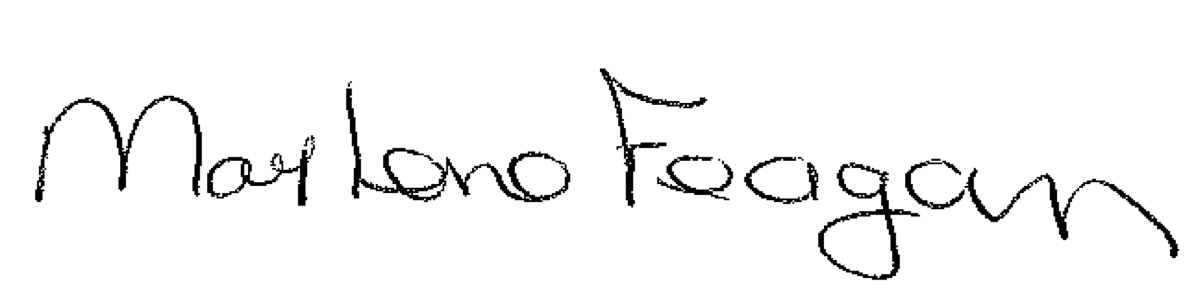 Marlene Feagan